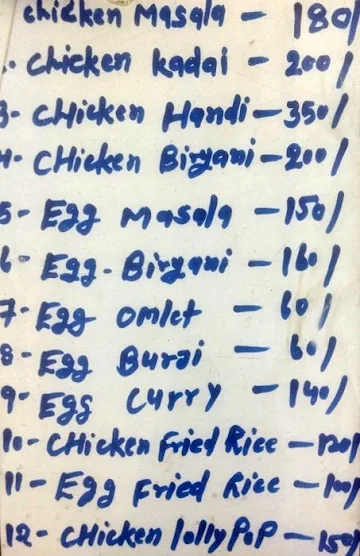 chicken Masala - 180/
. chicken kadai - 200/
3- CHicken Handi - 350/
4- CHicken Biryani - 200/
5- Egg masala - 150/
6- Egg- Biryani - 160/
7- Egg omlet - 60/
8- Egg Burji - 60/
9- Egg Curry - 140/
10- CHicken Fried Rice - 120/
11- Egg Fried Rice - 100/
12- CHicken lollyPoP - 150/